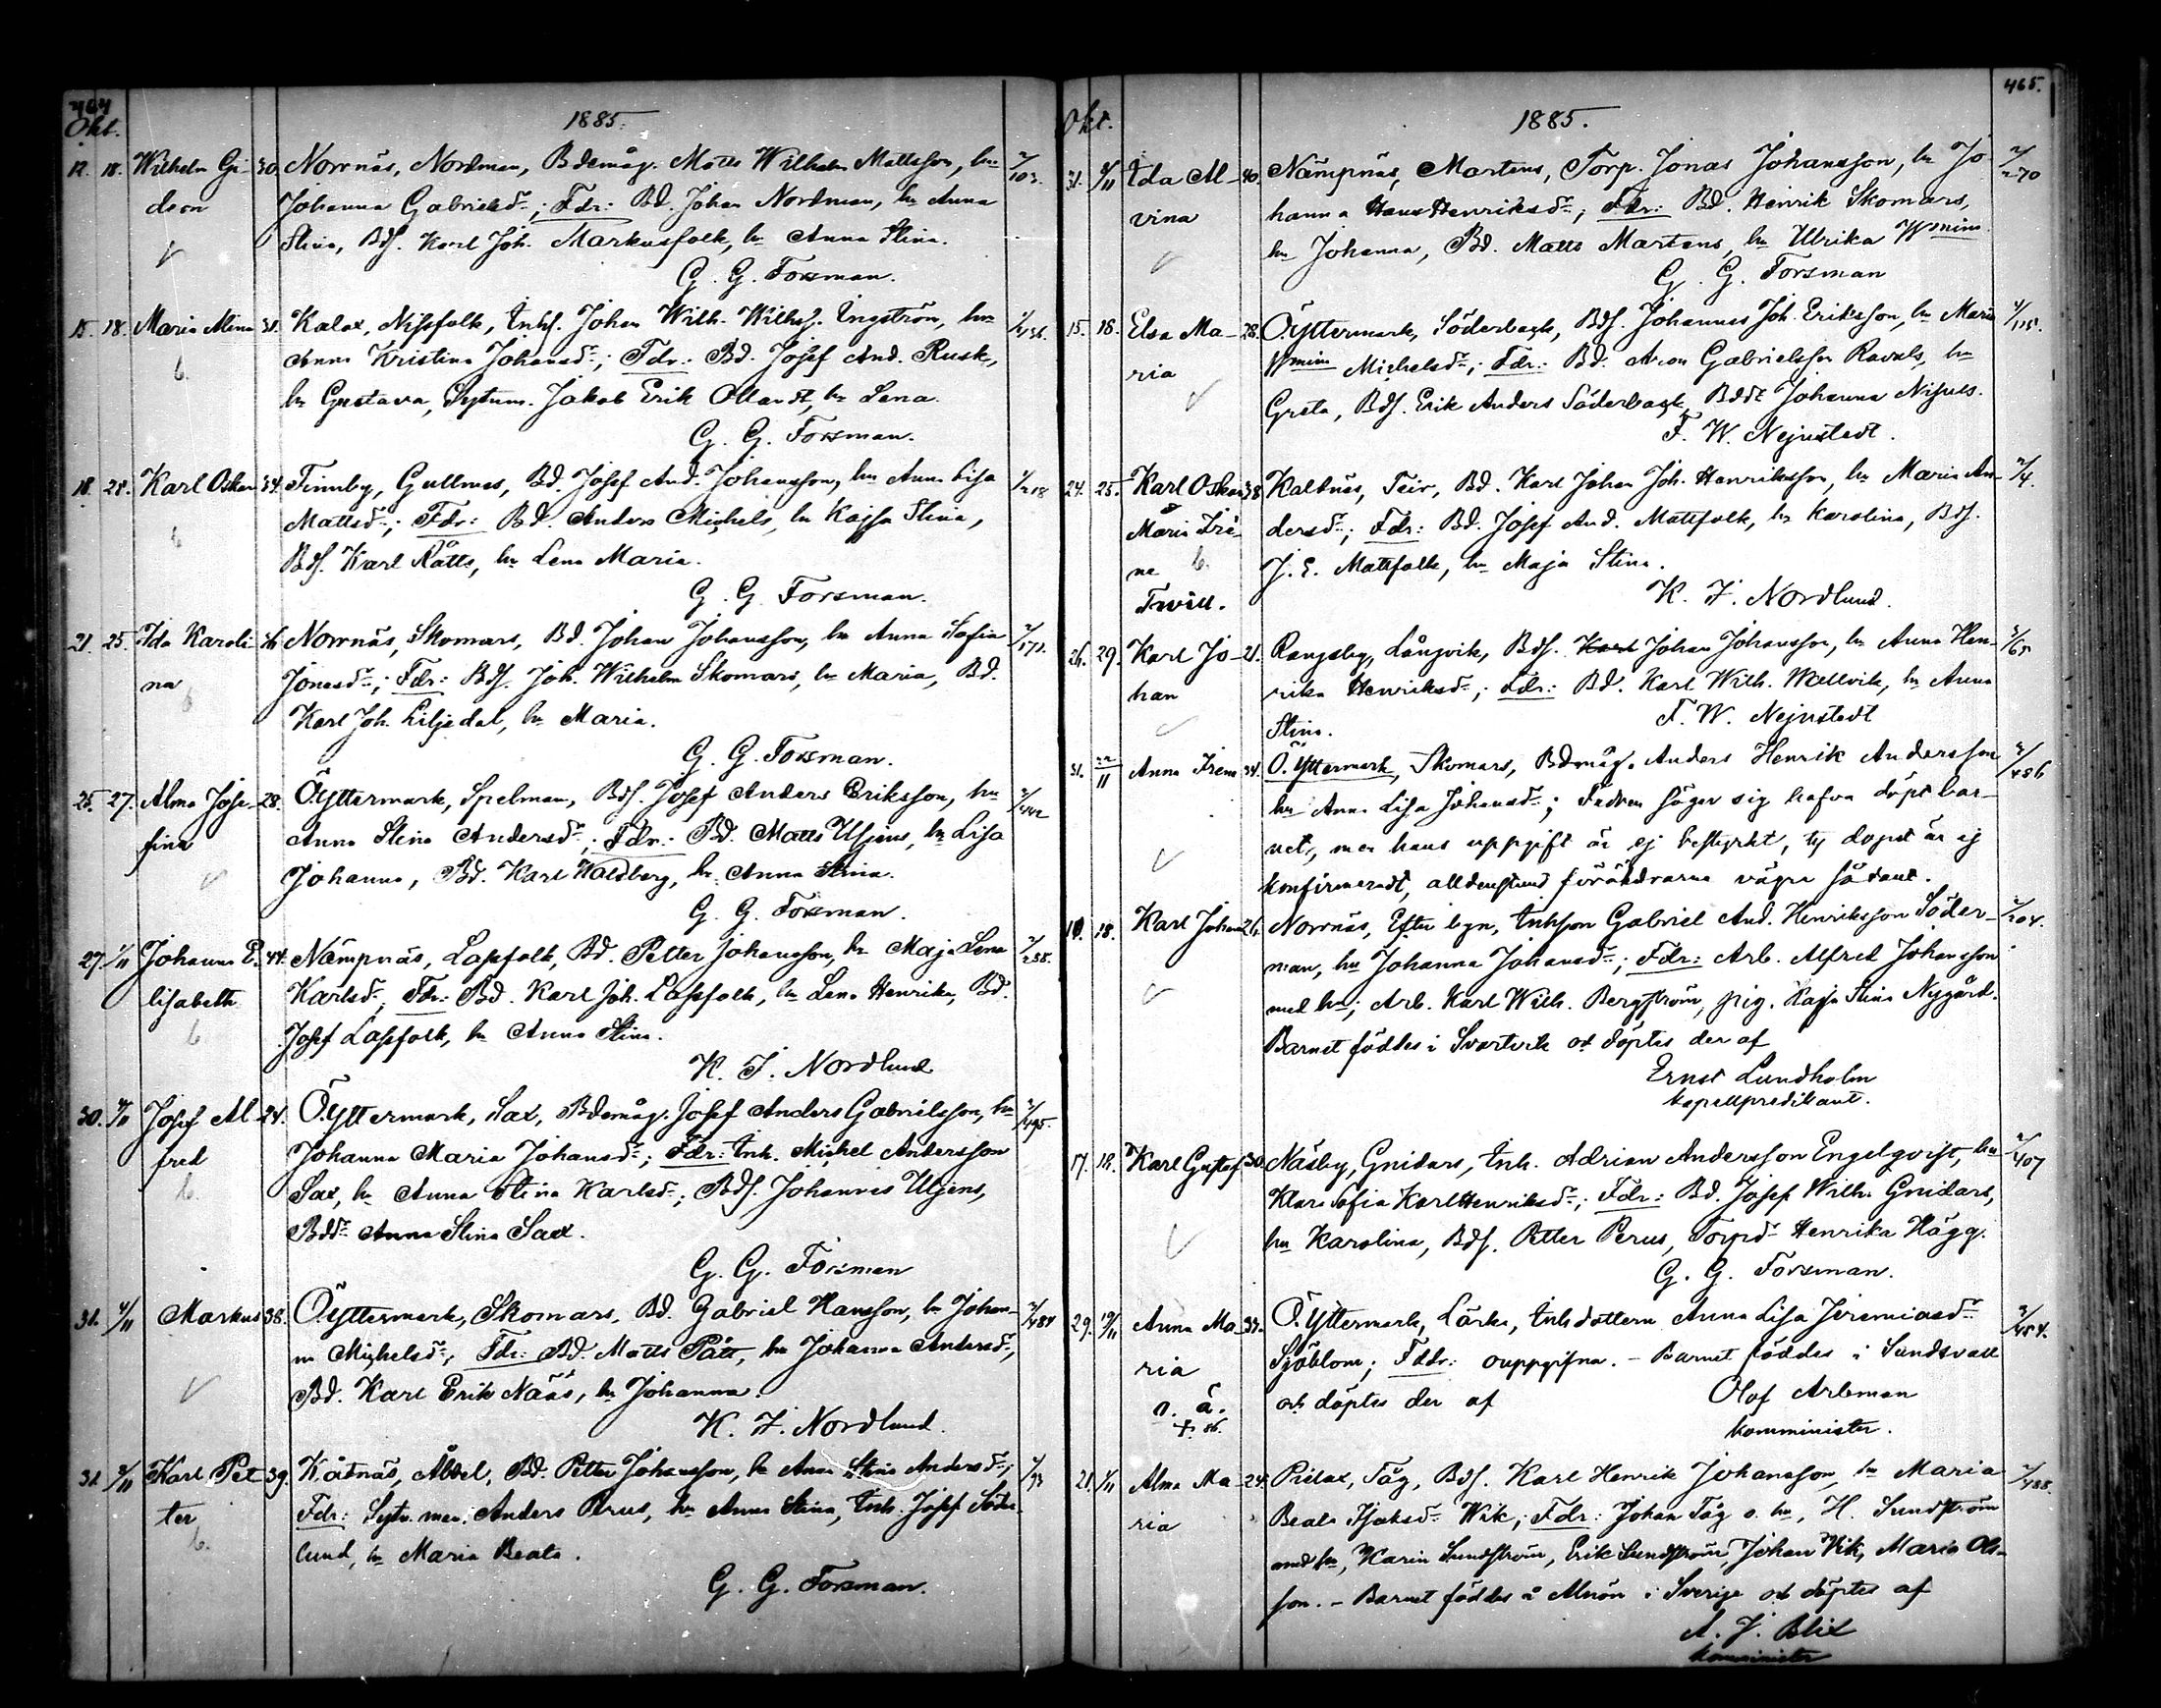 464
Okt.
1885.
12. 18. Wilhelm Gi- 30. Norrnäs, Nordman, Bdemåg. Matts Wilhelm Mattsson, hu 2/103.
deon Johanna Gabrielsdr; Fdr: Bd. Johan Nordman, hu Anna
Stina, Bds. Karl Joh. Markusfolk, hu Anna Stina.
G. G. Forsman.
15. 18. Maria Alina 31. Kalax, Nissfolk, Inhs. Johan Wilh. Wilhs. Ingström, hu
Anna Kristina Johansdr; Fdr: Bd. Josef And. Rusk,
b. hu Gustava, Sytnm. Jakob Erik Ollandt, hu Lena.
G. G. Forsman.
18. 28. Karl Oskar 34. Finnby, Gullmes, Bd. Josef And. Johansson, hu Anna Lisa
Mattsdr; Fdr: Bd. Anders Michels, hu Kajsa Stina,
b Bds. Karl Rätts, hu Lena Maria.
G. G. Forsman.
21. 25. Ida Karoli- Norrnäs, Skomars, Bd. Johan Johansson, hu Anna Sofia
na Jonasdr; Fdr: Bds. Joh. Wilhelm Skomars, hu Maria, Bd.
b Karl Joh. Liljedal, hu Maria.
G. G. Forsman.
25. 27. Alma Jose- 28. Ö.Yttermark, Spelman, Bds. Josef Anders Eriksson, hu
fina Anna Stina Andersdr; Fdr: Bd. Matts Uljens, hu Lisa
Johanna, Bd. Karl Waldberg, hu Anna Stina.
G. G. Forsman.
27. 1/11 Johanna E- 44. Nämpnäs, Lassfolk, Bd. Petter Johansson, hu Maja Lena 2/288.
lisabeth Karlsdr; Fdr: Bd. Karl Joh. Lassfolk, hu Lena Henrika, Bd.
b Josef Lassfolk, hu Anna Stina.
K. J. Nordlund
30. 4/11 Josef Al- 24. Ö.Yttermark, Sax, Bdemåg. Josef Anders Gabrielsson, hu 2/495.
fred Johanna Maria Johansdr; Fdr: Inh. Michel Andersson
b. Sax, hu Anna Stina Karlsdr; Bds. Johannes Uljens,
Bddr Anna Stina Sax.
G. G. Forsman
31. 4/11 Markus 38. Ö.Yttermark, Skomars, Bd. Gabriel Hansson, hu Johan- 2/484
na Michelsdr; Fdr: Bd. Matts Pått, hu Johanna Andersdr,
Bd. Karl Erik Nääs, hu Johanna.
K. J. Nordlund.
31. Karl Pet- 39. Kåtnäs, Åbbel, Bd. Petter Johansson, hu Anna Stina Andersdr; 2/93
ter Fdr: Sytn. man Anders Perus, hu Anna Stina, Inh. Josef Söder-
b. lund, hu Maria Beata.
G. G. Forsman.
465.
Okt.
1885.
31. Ida Al- 40. Nämpnäs, Martens, Torp. Jonas Johansson, hu Jo- 2/270
vina hanna Henriksdr; Fdr: Bd. Henrik Skomars,
hu Johanna, Bd. Matts Martens, hu Ulrika
G. G. Forsman
15. 18. Elsa Ma- 28. Ö.Yttermark, Söderback, Bds. Johannes Joh. Eriksson, hu Maria
ria Michelsdr; Fdr: Bd. Aron Gabrielsson Ravals, hu
Greta, Bds. Erik Anders Söderback, Bddr Johanna Nissuls.
F. W. Nejnstedt.
24. 25. Karl Oskar 38 Kaltnäs, Teir, Bd. Karl Johan Joh. Henriksson, hu Maria An- 2/4.
Maria Iri- dersdr; Fdr: Bd. Josef And. Mattfolk, hu Karolina, Bds.
ne b. J. E. Mattfolk, hu Maja Stina.
Tvill. K. J. Nordlund.
26. 29. Karl Jo- 21. Rangsby, Långvik, Bds. Karl Johan Johansson, hu Anna Hen-
han rika Henriksdr; Fdr: Bd. Karl Wilh. Wellvik, hu Anna
Stina. F. W. Nejnstedt
31. 22/11 Anna Irene 34. Ö.Yttermark, Skomars, Bdemåg. Anders Henrik Andersson 2/486
hu Anna Lisa Johansdr; Fadren säger sig hafva döpt bar-
net, men hans uppgift är ej bestyrkt, ty dopet är ej
konfirmeradt, alldenstund föräldrarna vägra sådant.
10. 18. Karl Johan 26. Norrnäs, Efter byn, Inhson Gabriel And. Henriksson Söder-
man, hu Johanna Johansdr; Fdr: Arb. Alfred Johansson
med hu; Arb. Karl Wilh. Bergström, pig. Kajsa Stina Nygård.
Barnet föddes i Svartvik och döptes der af
Ernst Lundholm
kapellpredikant.
17. 18. Karl Gustaf 30. Näsby, Gnidars, Inh. Adrian Andersson Engelqvist, hu 2/407
Klara Sofia Karl Henriksdr; Fdr: Bd. Josef Wilh. Gnidars,
hu Karolina, Bds. Petter Perus, Torpdr Henrika Hägg.
G. G. Forsman.
29. 19/11 Anna Ma- 34. Ö.Yttermark, Lärka, Inhdottern Anna Lisa Jeremiasdr
ria Sjöblom; Fddr: ouppgifna. - Barnet föddes i Sundsvall
o. ä. och döptes der af Olof Arbman
komminister.
21. 1/11 Alma Ma- 24. Pielax, Täg, Bds. Karl Henrik Johansson, hu Maria 2/488.
ria Beata Isaksdr Wik; Fdr: Johan Täg o. hu, H. Sundström
med hu, Karin Sundström, Erik Sundström, Johan Vik, Maria Ols-
son. - Barnet föddes å Alnön i Sverige och döptes af
A. J. Blix
komminister